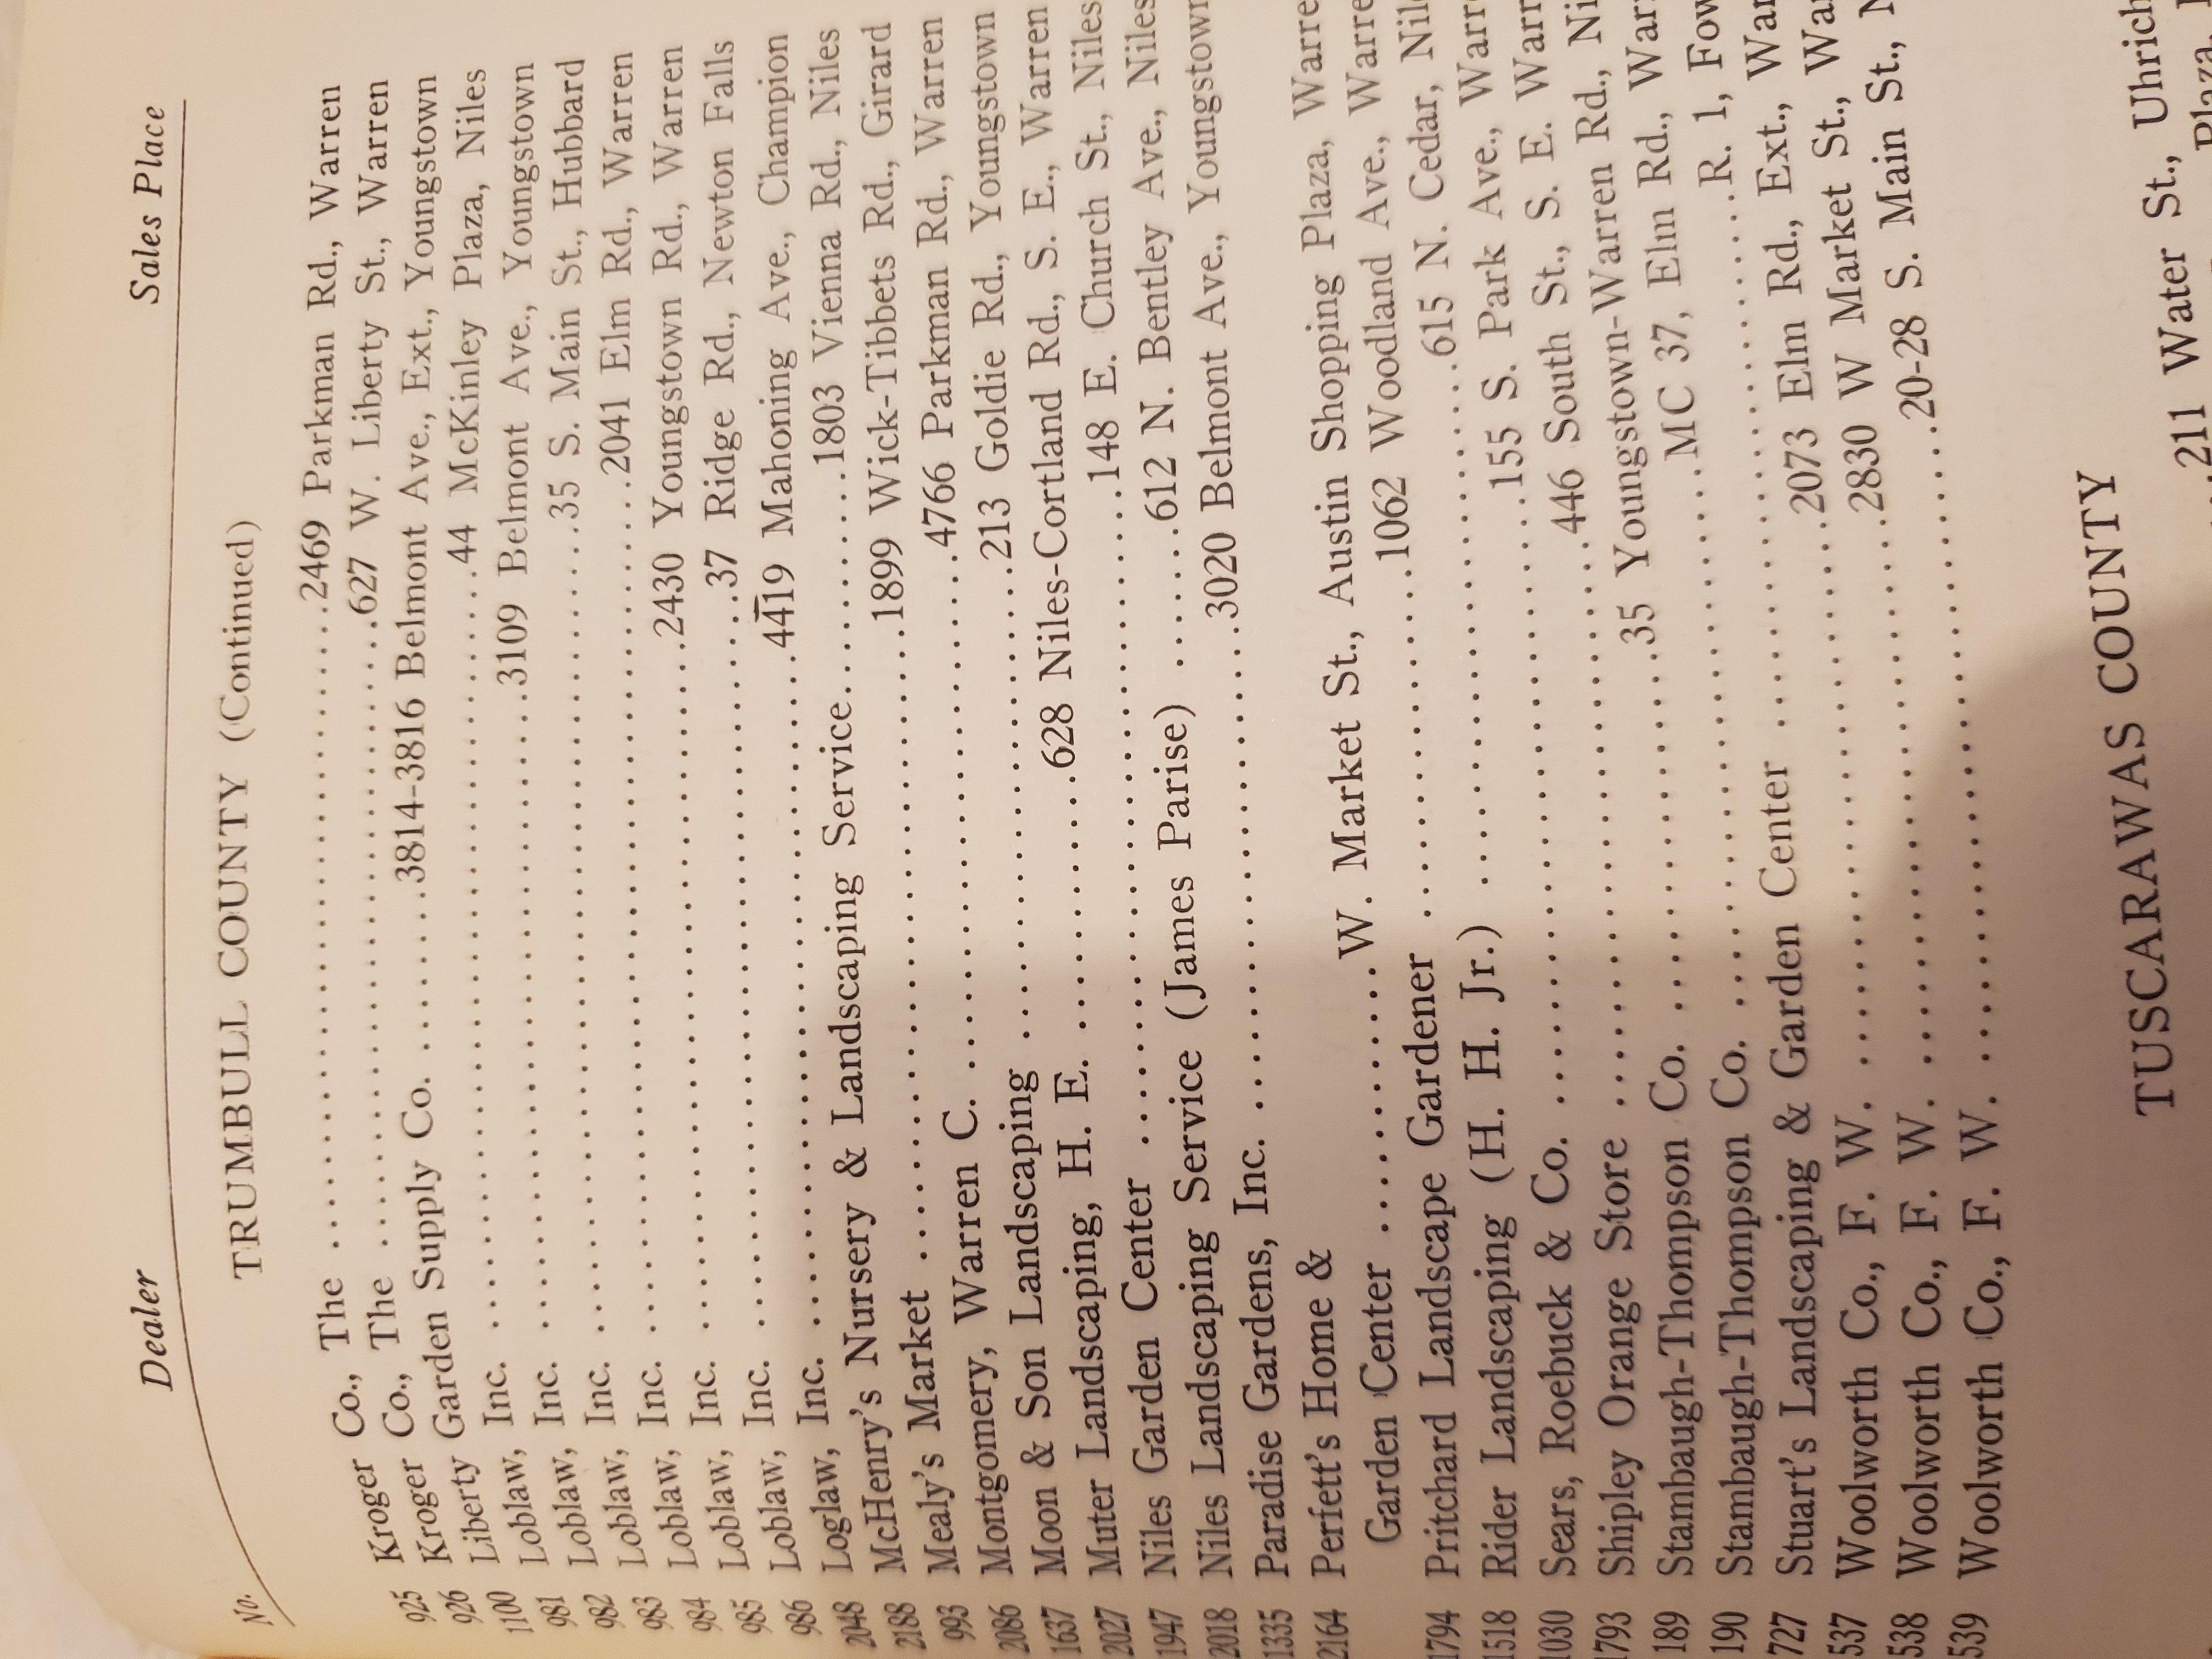 No. Dealer Sales Place
TRUMBULL COUNTY (Continued)
925 Kroger Co., The ........ 2469 Parkman Rd., Warren
926 Kroger Co., The ........ 627 W. Liberty St., Warren
1100 Liberty Garden Supply Co. ........ 3814-3816 Belmont Ave., Ext., Youngstown
981 Loblaw, Inc. ........ 44 McKinley Plaza, Niles
982 Loblaw, Inc. ........ 3109 Belmont Ave., Youngstown
983 Loblaw, Inc. ........ 35 S. Main St., Hubbard
984 Loblaw, Inc. ........ 2041 Elm Rd., Warren
985 Loblaw, Inc. ........ 2430 Youngstown Rd., Warren
986 Loblaw, Inc. ........ 37 Ridge Rd., Newton Falls
2048 Loglaw, Inc. ........ 4419 Mahoning Ave., Champion
2188 McHenry's Nursery & Landscaping Service ........ 1803 Vienna Rd., Niles
993 Mealy's Market ........ 1899 Wick-Tibbets Rd., Girard
2086 Montgomery, Warren C. ........ 4766 Parkman Rd., Warren
1637 Moon & Son Landscaping ........ 213 Goldie Rd., Youngstown
2027 Muter Landscaping, H. E. ........ 628 Niles-Cortland Rd., S. E., Warren
1947 Niles Garden Center ........ 148 E. Church St., Niles
2018 Niles Landscaping Service (James Parise) ........ 612 N. Bentley Ave., Niles
1335 Paradise Gardens, Inc. ........ 3020 Belmont Ave., Youngstown
2164 Perfett's Home &
Garden Center ........ W. Market St., Austin Shopping Plaza, Warre
1794 Pritchard Landscape Gardener ........ 1062 Woodland Ave., Warre
1518 Rider Landscaping (H. H. Jr.) ........ 615 N. Cedar, Nil
1030 Sears, Roebuck & Co. ........ 155 S. Park Ave., Warr
1793 Shipley Orange Store ........ 446 South St., S. E. Warr
189 Stambaugh-Thompson Co. ........ 35 Youngstown-Warren Rd., Ni
190 Stambaugh-Thompson Co. ........ MC 37, Elm Rd., War
727 Stuart's Landscaping & Garden Center ........ R. 1, Fow
537 Woolworth Co., F. W. ........ 2073 Elm Rd., Ext., War
538 Woolworth Co., F. W. ........ 2830 W Market St., Wa
539 Woolworth Co., F. W. ........ 20-28 S. Main St., N
TUSCARAWAS COUNTY
211 Water St., Uhrich
Plaza,